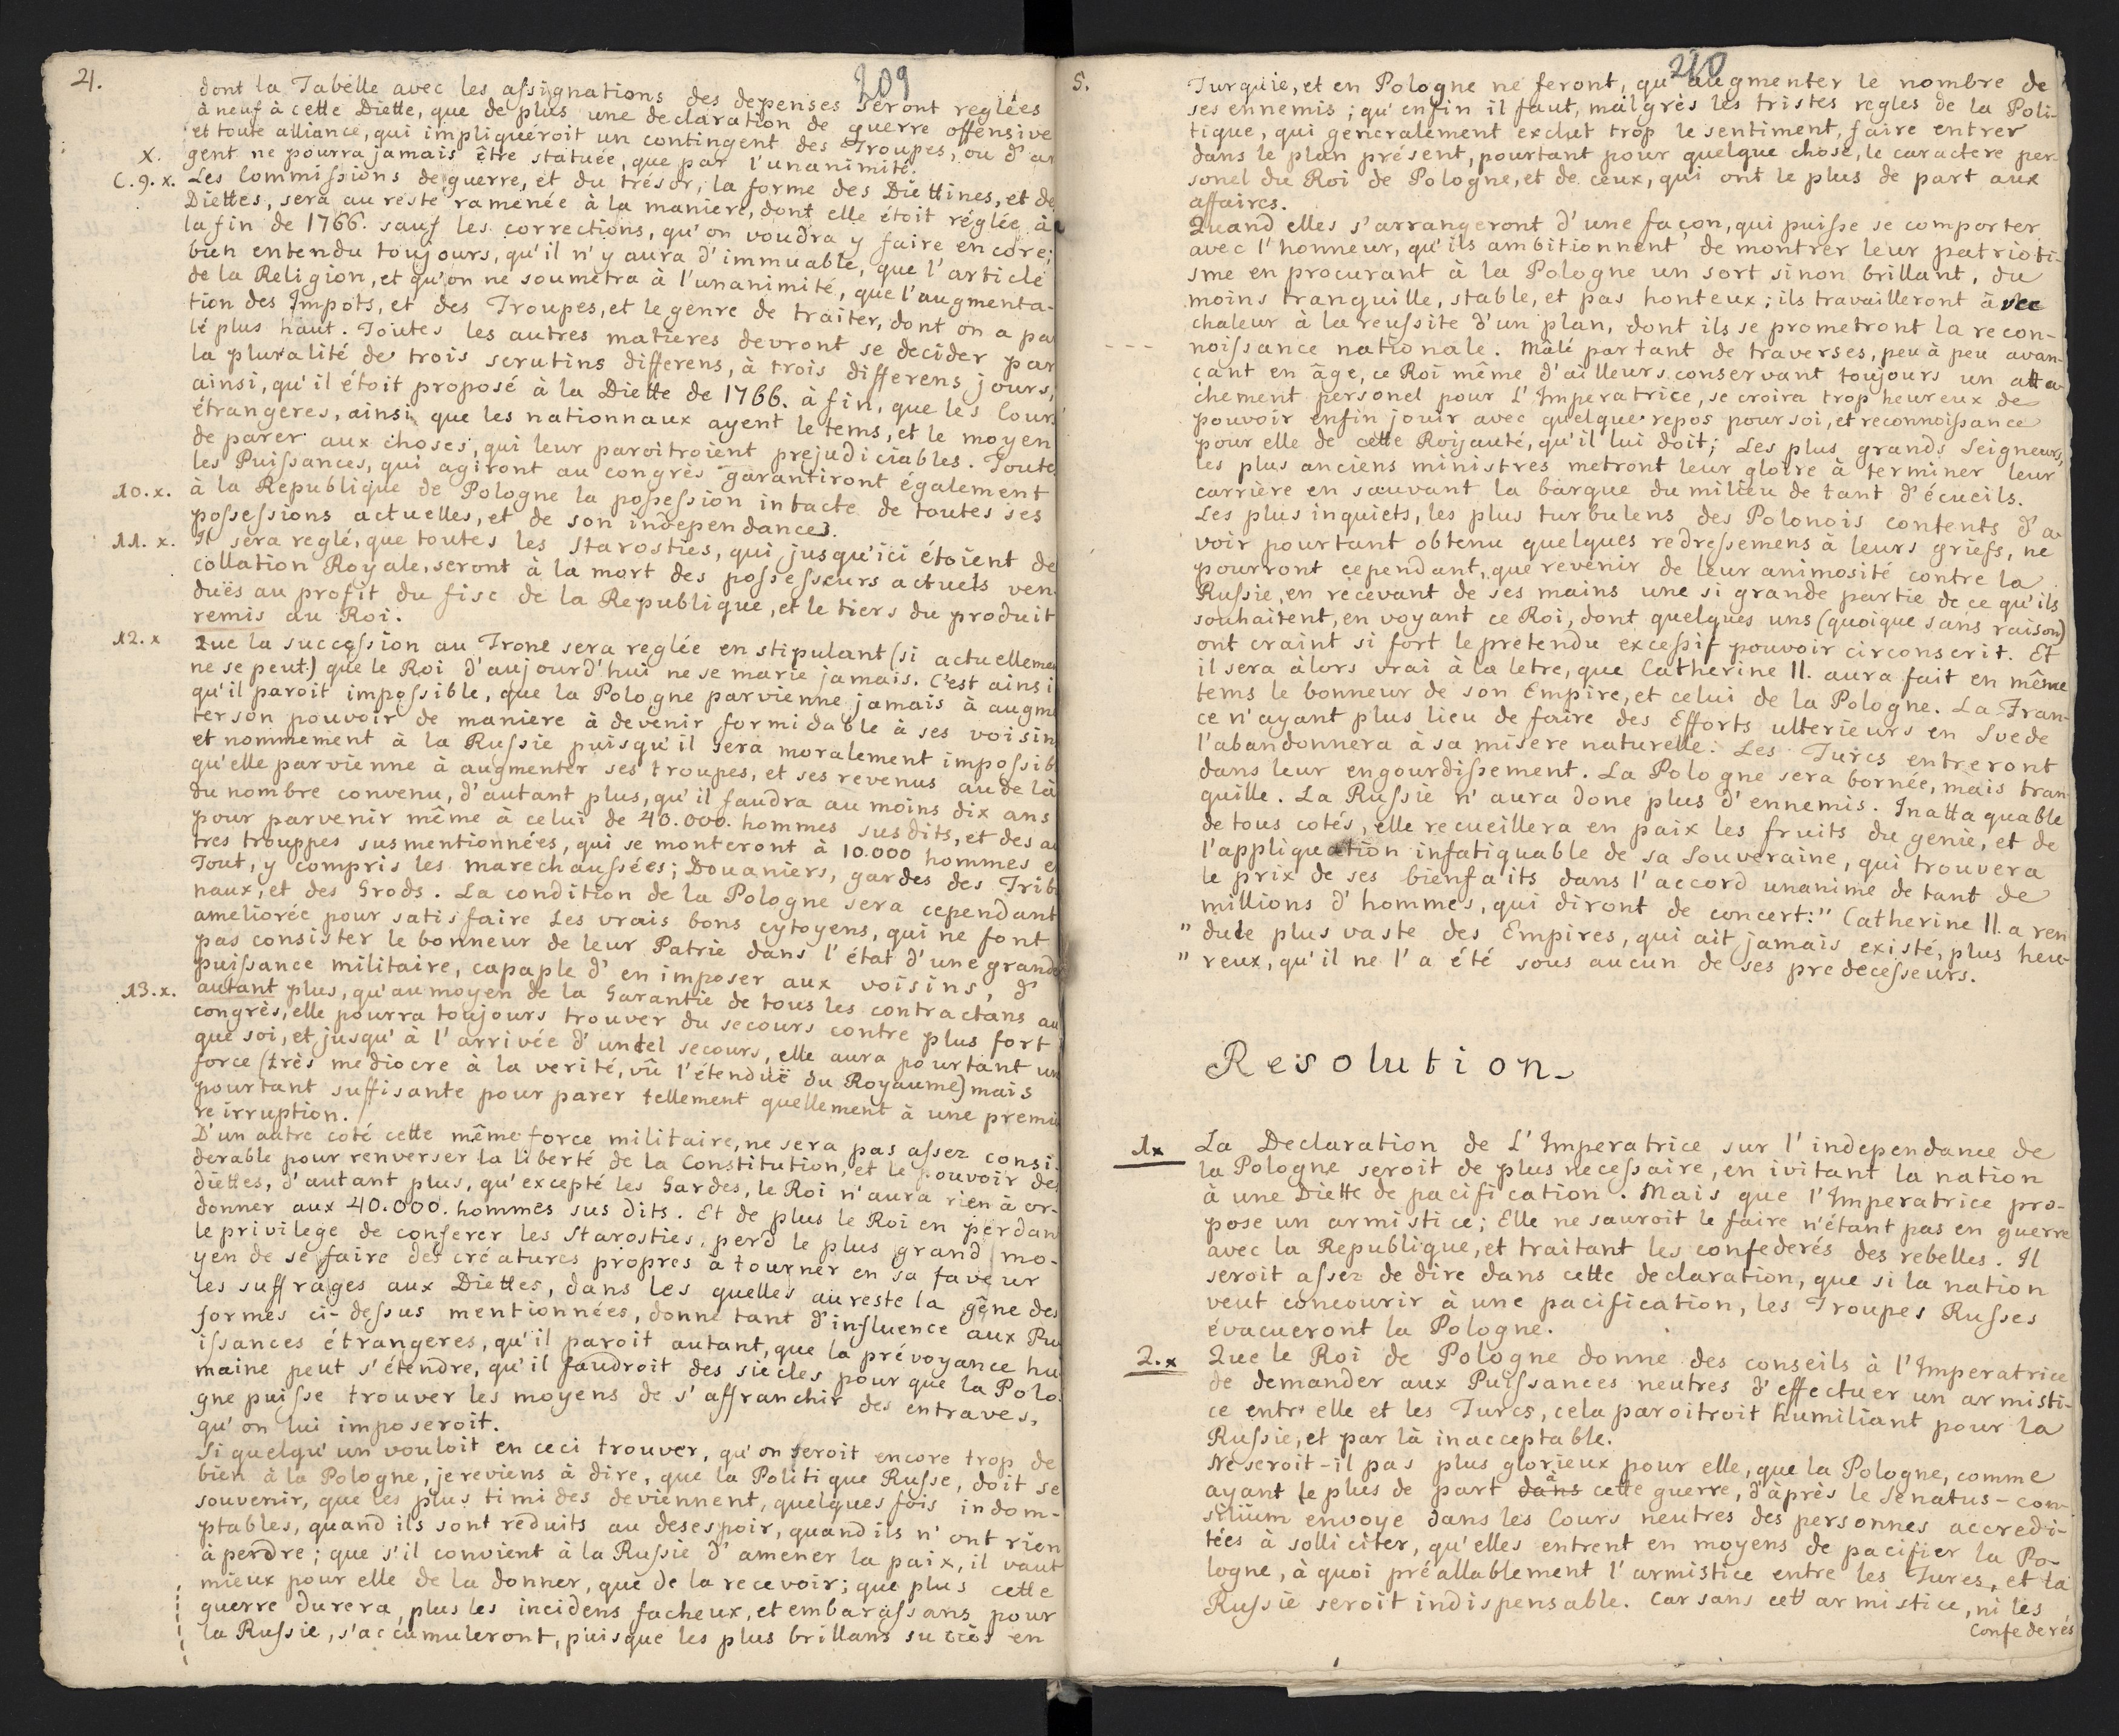 21.
209
dont la Tabelle avec les assignations des depenses seront reglées
à neuf à cette Diette, que de plus une declaration de guerre offensive
et toute alliance, qui impliqueroit un contingent des Troupes, ou d'ar
X. gent ne pourra jamais être statuée, que par l'unanimité.
C. 9. x. Les Commissions de guerre, et du trésor, la forme des Diettines, et de
Diettes, sera au reste ramenée à la maniere, dont elle étoit réglée à
la fin de 1766. sauf les corrections, qu'on voudra y faire encore;
bien entendu toujours, qu'il n'y aura d'immuable, que l'article
de la Religion, et qu'on ne soumetra à l'unanimité, que l'augmenta-
tion des Impots, et des Troupes, et le genre de traiter, dont on a pa
lé plus haut. Toutes les autres matieres devront se decider par
la pluralité de trois scrutins differens, à trois differens jours,
ainsi, qu'il étoit proposé à la Diette de 1766. à fin, que les Cours
étrangeres, ainsi que les nationnaux ayent le tems, et le moyen
de parer aux choses, qui leur paroitroient prejudiciables. Toute
les Puissances, qui agiront au congrès garantiront également
10. x. à la Republique de Pologne la possession intacte de toutes ses
possessions actuelles, et de son independance.
11. x. Il sera reglé, que toutes les Starosties, qui jusqu'ici étoient de
collation Royale, seront à la mort des possesseurs actuels ven-
duës au profit du fisc de la Republique, et le tiers du produit
remis au Roi.
12. x Que la succession au Trone sera reglée en stipulant (si actuellemen
ne se peut) que le Roi d'aujourd'hui ne se marie jamais. C'est ainsi
qu'il paroit impossible, que la Pologne parvienne jamais à augme
ter son pouvoir de maniere à devenir formidable à ses voisin
et nommement à la Russie puisqu'il sera moralement impossib
qu'elle parvienne à augmenter ses troupes, et ses revenus au de là
du nombre convenu, d'autant plus, qu'il faudra au moins dix ans
pour parvenir même à celui de 40.000. hommes susdits, et des au
tres trouppes susmentionnées, qui se monteront à 10.000 hommes e
Tout, y compris les marechaussées; Douaniers, gardes des Trib
naux, et des Grods. La condition de la Pologne sera cependant
ameliorée pour satisfaire Les vrais bons cytoyens, qui ne font
pas consister le bonneur de leur Patrie dans l'état d'une grande
puissance militaire, capaple d'en imposer aux voisins, d'
13. x. autant plus, qu'au moyen de la Garantie de tous les contractans au
congrès, elle pourra toujours trouver du secours contre plus fort
que soi, et jusqu'à l'arrivée d'un tel secours, elle aura pourtant un
force (très mediocre à la verité, vû l'étenduë du Royaume) mais
pourtant suffisante pour parer tellement quellement à une premie
re irruption.
D'un autre coté cette même force militaire, ne sera pas assez consi-
derable pour renverser la liberté de la Constitution, et le pouvoir des
diettes, d'autant plus, qu'excepté les Gardes, le Roi n'aura rien à or-
donner aux 40.000. hommes sus dits. Et de plus le Roi en perdan
le privilege de conferer les Starosties, perd le plus grand mo-
yen de se faire des créatures propres à tourner en sa faveur
les suffrages aux Diettes, dans les quelles au reste la gêne des
formes ci-dessus mentionnées, donne tant d'influence aux Pu
issances étrangeres, qu'il paroit autant, que la prévoyance hu
maine peut s'étendre, qu'il faudroit des siecles pour que la Polo-
gne puisse trouver les moyens de s'affranchir des entraves,
qu'on lui imposeroit.
Si quelqu'un vouloit en ceci trouver, qu'on feroit encore trop de
bien à la Pologne, je reviens à dire, que la Politique Russe, doit se
souvenir, que les plus timides deviennent, quelques fois indom-
ptables, quand ils sont reduits au desespoir, quand ils n'ont rien
à perdre; que s'il convient à la Russie d'amener la paix, il vaut
mieux pour elle de la donner, que de la recevoir; que plus cette
guerre durera, plus les incidens facheux, et embarassans pour
la Russie, s'accumuleront, puisque les plus brillans succès en
5.
210
Turquie, et en Pologne ne feront, qu'augmenter le nombre de
ses ennemis; qu'enfin il faut, malgrès les tristes regles de la Poli-
tique, qui generalement exclut trop le sentiment, faire entrer
dans le plan présent, pourtant pour quelque chose, le caractere per-
sonel du Roi de Pologne, et de ceux, qui ont le plus de part aux
affaires.
Quand elles s'arrangeront d'une façon, qui puisse se comporter
avec l'honneur, qu'ils ambitionnent de montrer leur patrioti-
sme en procurant à la Pologne un sort sinon brillant, du
moins tranquille, stable, et pas honteux; ils travailleront avec
chaleur à la reussite d'un plan, dont ils se prometront la recon-
noissance nationale. Mâlé partant de traverses, peu à peu avan-
çant en âge, ce Roi même d'ailleurs conservant toujours un atta-
chement personel pour L'Imperatrice, se croira trop heureux de
pouvoir enfin jouir avec quelque repos pour soi, et reconnoissance
pour elle de cette Roijauté, qu'il lui doit; Les plus grands Seigneurs,
les plus anciens ministres metront leur gloire à terminer leur
carrière en sauvant la barque du milieu de tant d'écueils.
Les plus inquiets, les plus turbulens des Polonois contents d'a-
voir pourtant obtenu quelques redressemens à leurs griefs, ne
pourront cependant, que revenir de leur animosité contre la
Russie, en recevant de ses mains une si grande partie de ce qu'ils
souhaitent, en voyant ce Roi, dont quelques uns (quoique sans raison)
ont craint si fort le pretendu excessif pouvoir circonscrit. Et
il sera alors vrai à la letre, que Catherine II. aura fait en même
tems le bonneur de son Empire, et celui de la Pologne. La Fran-
ce n'ayant plus lieu de faire des Efforts ulterieurs en Svede
l'abandonnera à sa misere naturelle: Les Turcs entreront
dans leur engourdissement. La Pologne sera bornée, mais tran-
quille. La Russie n'aura donc plus d'ennemis. Inattaquable
de tous cotés, elle recueillera en paix les fruits du genie, et de
l'application infatiguable de sa Souveraine, qui trouvera
le prix de ses bienfaits dans l'accord unanime de tant de
millions d'hommes, qui diront de concert: " Catherine II. a ren
" du le plus vaste des Empires, qui ait jamais existé, plus heu-
" reux, qu'il ne l'a été sous aucun de ses predecesseurs.
Resolution.
1x La Declaration de L'Imperatrice sur l'independance de
la Pologne seroit de plus necessaire, en ivitant la nation
à une Diette de pacification. Mais que l'Imperatrice pro-
pose un armistice; Elle ne sauroit le faire n'étant pas en guerre
avec la Republique, et traitant les confederés des rebelles. Il
seroit assez de dire dans cette declaration, que si la nation
veut concourir à une pacification, les Troupes Russes
évacueront la Pologne.
2. x Que le Roi de Pologne donne des conseils à l'Imperatrice
de demander aux Puissances neutres d'effectuer un armisti-
ce entr' elle et les Turcs, cela paroitroit humiliant pour la
Russie, et par là inacceptable.
Ne seroit-il pas plus glorieux pour elle, que la Pologne, comme
ayant le plus de part dans à cette guerre, d'après le Senatus-con-
silium envoye dans les Cours neutres des personnes accredi-
tées à solliciter, qu'elles entrent en moyens de pacifier la Po-
logne, à quoi préallablement l'armistice entre les Turcs, et la
Russie seroit indispensable. Car sans cett armistice, ni les
Confederés